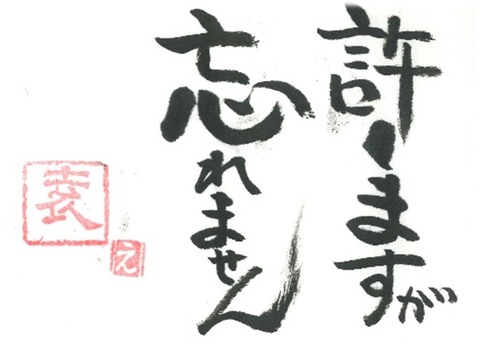 許しますが
忘れません
え